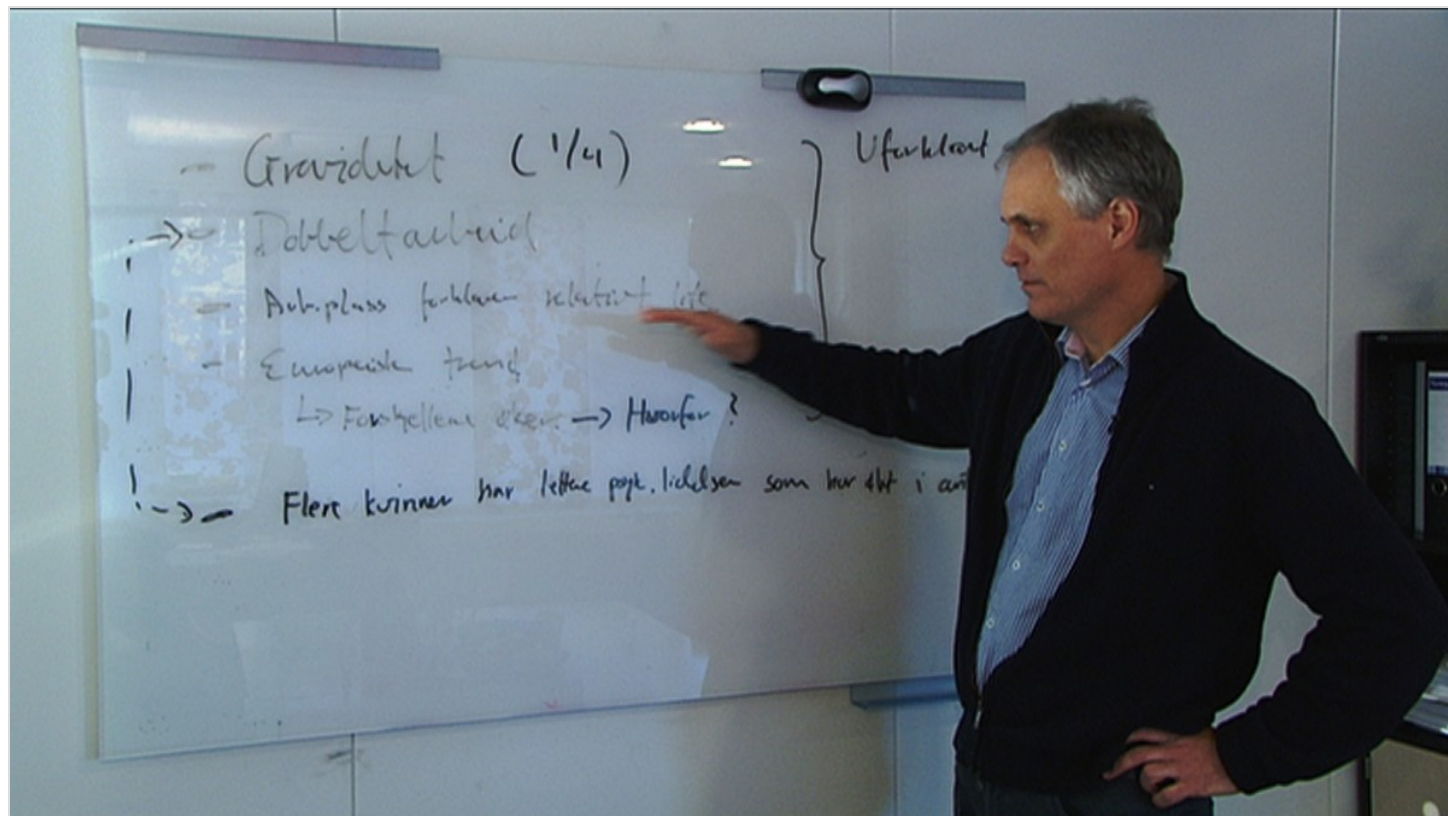 - Graviditet (1/4) } Uforklart
--> - Dobbeltarbeid
- Arb.plass forklarer relativt lite
- Europeisk trend
↳ Forskjellene øker → Hvorfor?
--> - Flere kvinner har lettere psyk. lidelser som har økt i